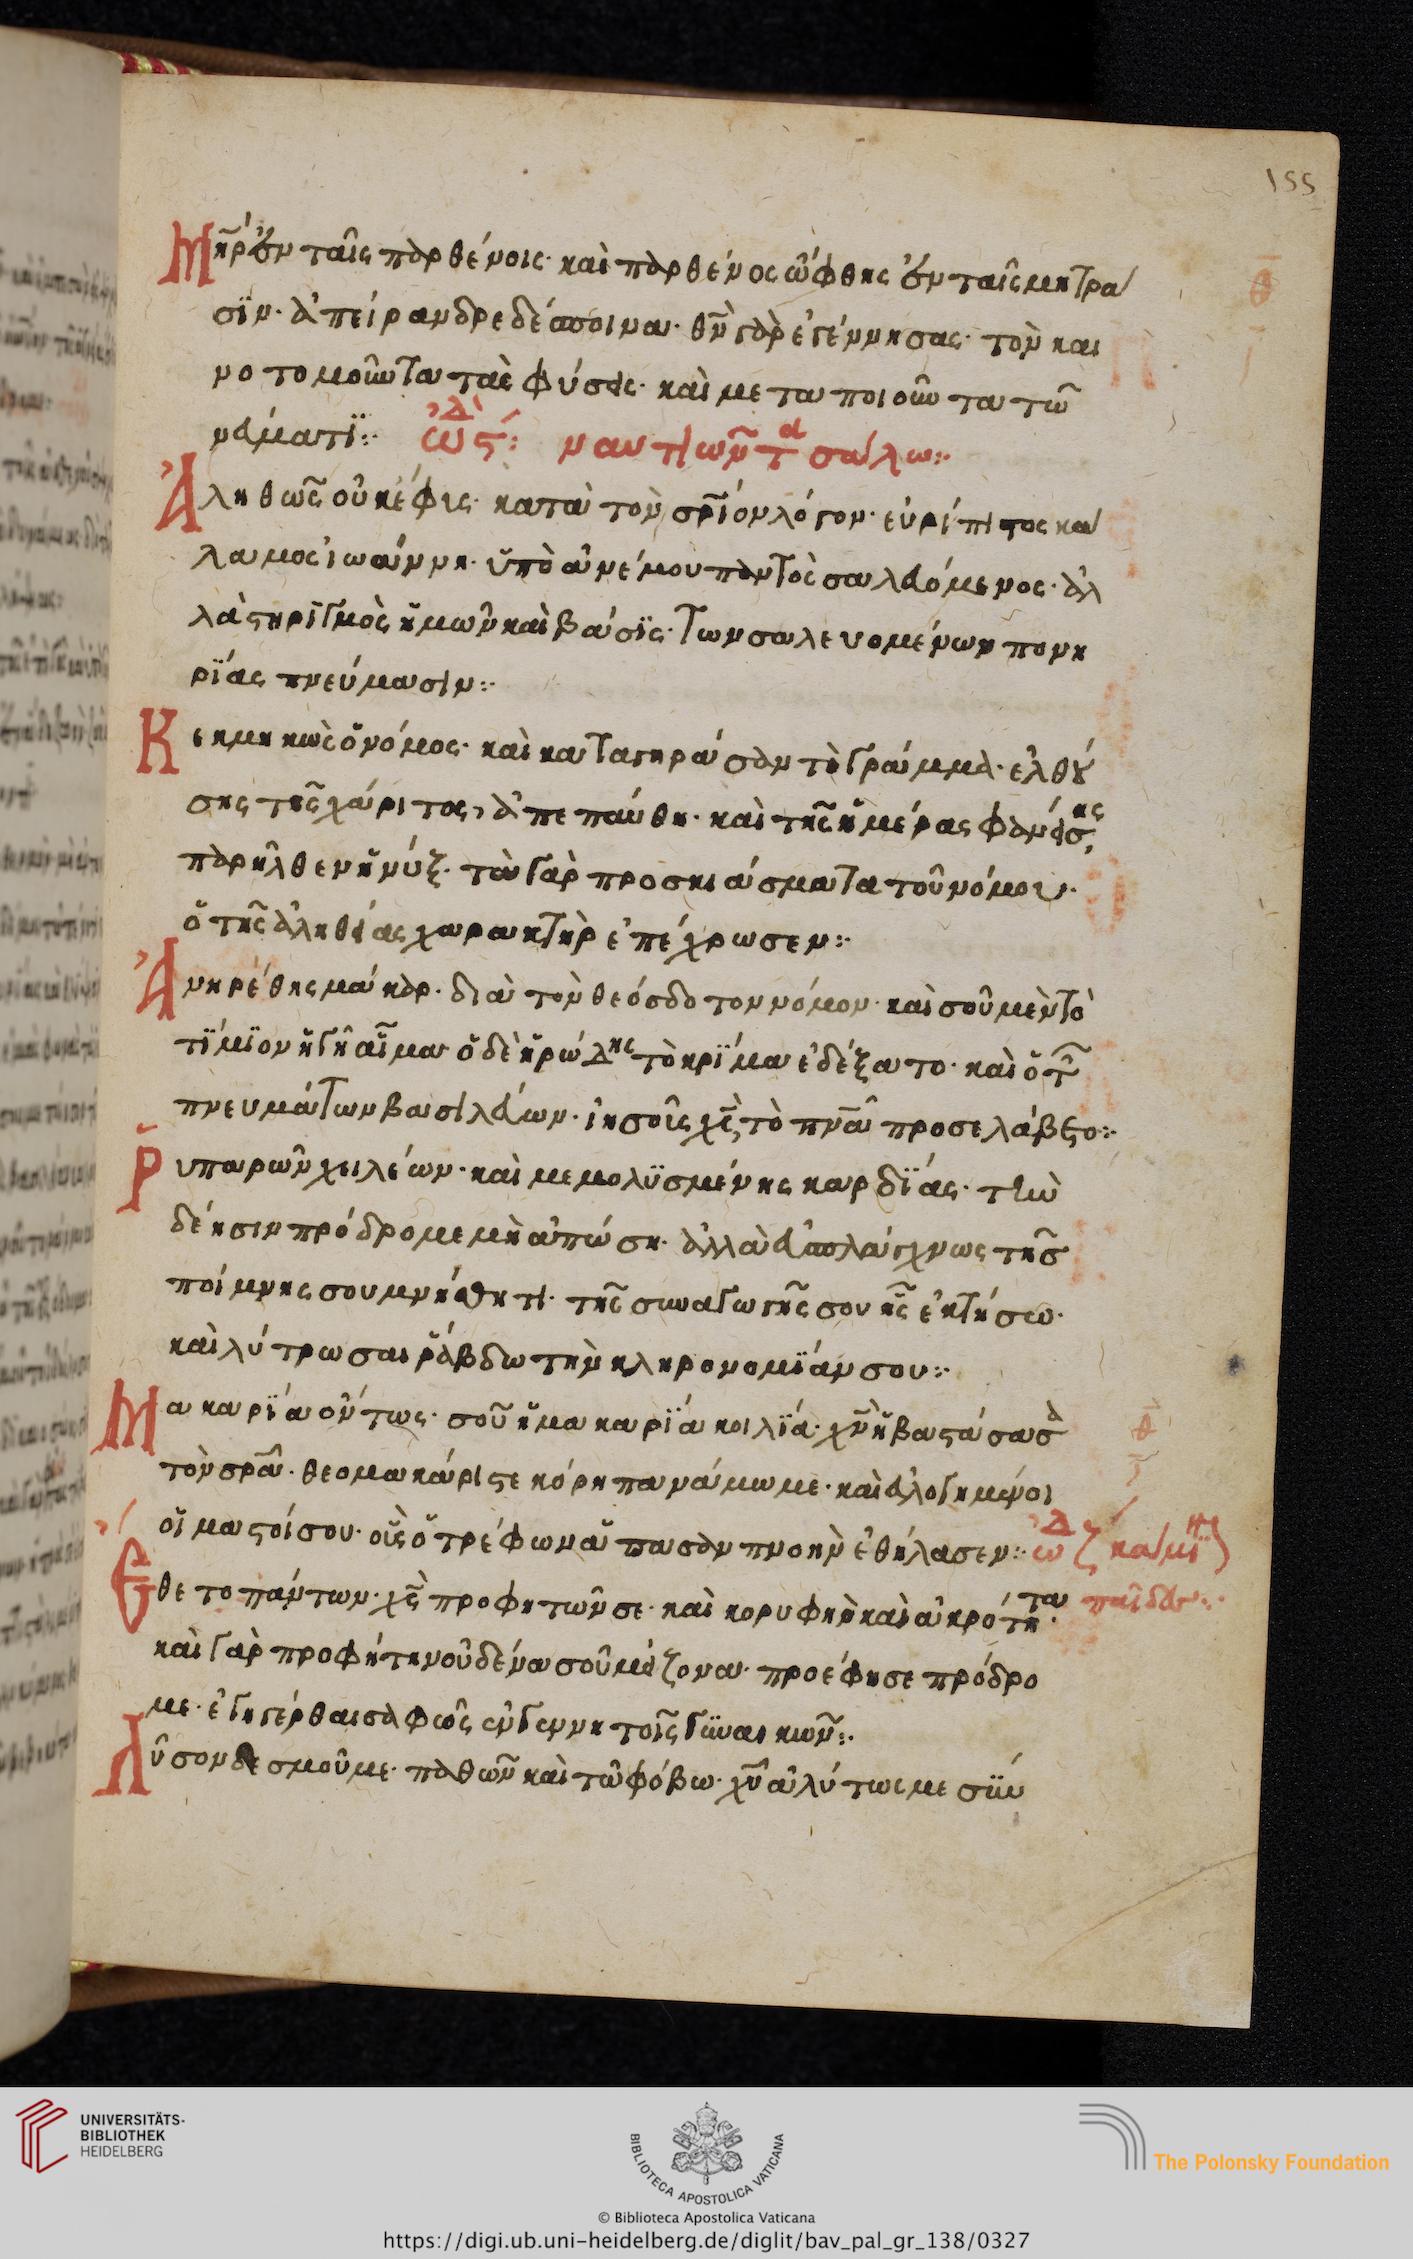 155
Μη̅ρ ἐν ταῖς παρθένοις· καὶ παρθένος ὤφθης ἐν ταῖς μητρά
σϊν· ἀπείρανδρε δέσποινα· θν̅ γὰρ ἐγέννησας· τὸν και
νοτομοῦντα τὰς φύσεις· καὶ μεταποιοῦντα τῶ
νεύματϊ:· ὠδ ς: ναυτιῶν τ σάλω:·
Ἀληθῶς οὐκ ἔφις· κατὰ τὸν σρ̅ιον λόγον· εὐρίπιστος κά
λαμος ἰωάννη· ὑπὸ ἀνέμου παντὸς σαλευόμενος· ἀλ
λὰ στηριγμὸς ἡμῶν καὶ βάσϊς· τῶν σαλευομένων πονη
ρΐας πνεύμασιν:·
Κεκμηκὼς ὁ νόμος· καὶ καταγηράσαν τὸ γράμμα· ἐλθού
σης τῆς χάριτος, ἀπεπαύθη· καὶ τῆς ἡμέρας φανείσης,
παρῆλθεν ἡ νύξ· τὰ γὰρ προσκιάσματα τοῦ νόμου·
ὁ τῆς ἀληθείας χαρακτὴρ ἐπέχρωσεν:·
Ἀνηρέθης μάκαρ· διὰ τὸν θεόσδοτον νόμον· καὶ σοῦ μὲν τὸ
τΐμϊον ἡ γῆ αἷμα ὁ δὲ ἡρώδης τὸ κρΐμα ἐδέξατο· καὶ ὁ τῶν
πνευμάτων βασιλεύων· ἰησοῦς χς̅ τὸ πνα̅ προσελάβετο:·
Ῥυπαρῶν χειλέων· καὶ μεμολϋσμένης καρδΐας· τὴν
δέησιν πρόδρομε μὴ ἀπώση· ἀλλὰ εὐσπλάγχνως τῆς
ποίμνης σου μνήσθητι· τῆς συναγωγῆς σου ἧς ἐκτήσω·
καὶ λύτρωσαι ῥάβδω τὴν κληρονομΐαν σου:·
Μακαρΐα ὄντως· σοῦ ἡ μακαρΐα κοιλΐα· χν̅ ἡ βαστάσασα
τὸν σρα̅· θεομακάριστε κόρη πανάμωμε· καὶ εὐλογημένοι
οἱ μαστοί σου· οὓς ὁ τρέφων ἅπασαν πνοὴν ἐθήλασεν:· ὠδ ζ
Ἔθετο πάντων· χς̅ προφητῶν σε· καὶ κορυφὴν καὶ ἀκρότητα· παῖδας:·
καὶ γὰρ προφήτην οὐδένα σοῦ μείζονα· προέφησε πρόδρο
με· ἐγηγέρθαι σαφῶς ἐν γεννητοῖς γϋναικῶν:·
Λῦσον δεσμοῦ με· παθῶν καὶ τῶ φόβω· χυ̅ ἀλύτως με σϋν
UNIVERSITÄTS-
BIBLIOTHEK
HEIDELBERG
BIBLIOTECA APOSTOLICA VATICANA
The Polonsky Foundation
© Biblioteca Apostolica Vaticana
https://digi.ub.uni-heidelberg.de/diglit/bav_pal_gr_138/0327